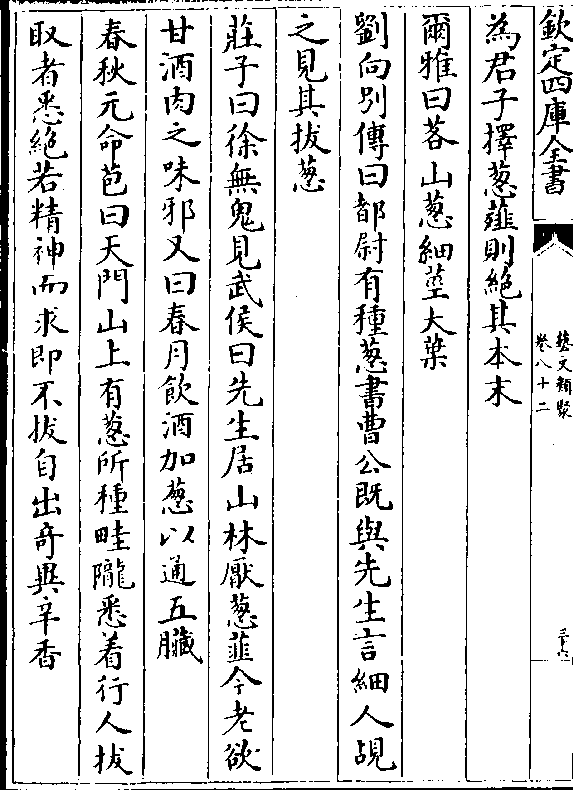 欽定四庫全書
藝文類聚
卷八十二
三十六
為君子擇葱薤則絶其本末
爾雅曰茖山葱細莖大葉
劉向别傳曰都尉有種葱書曹公既與先生言細人覘
之見其拔葱
莊子曰徐無鬼見武侯曰先生居山林厭葱韮今老欲
甘酒肉之味邪又曰春月飲酒加葱以通五臟
春秋元命苞曰天門山上有葱所種畦隴悉着行人拔
取者悉絶若精神而求即不拔自出奇異辛香